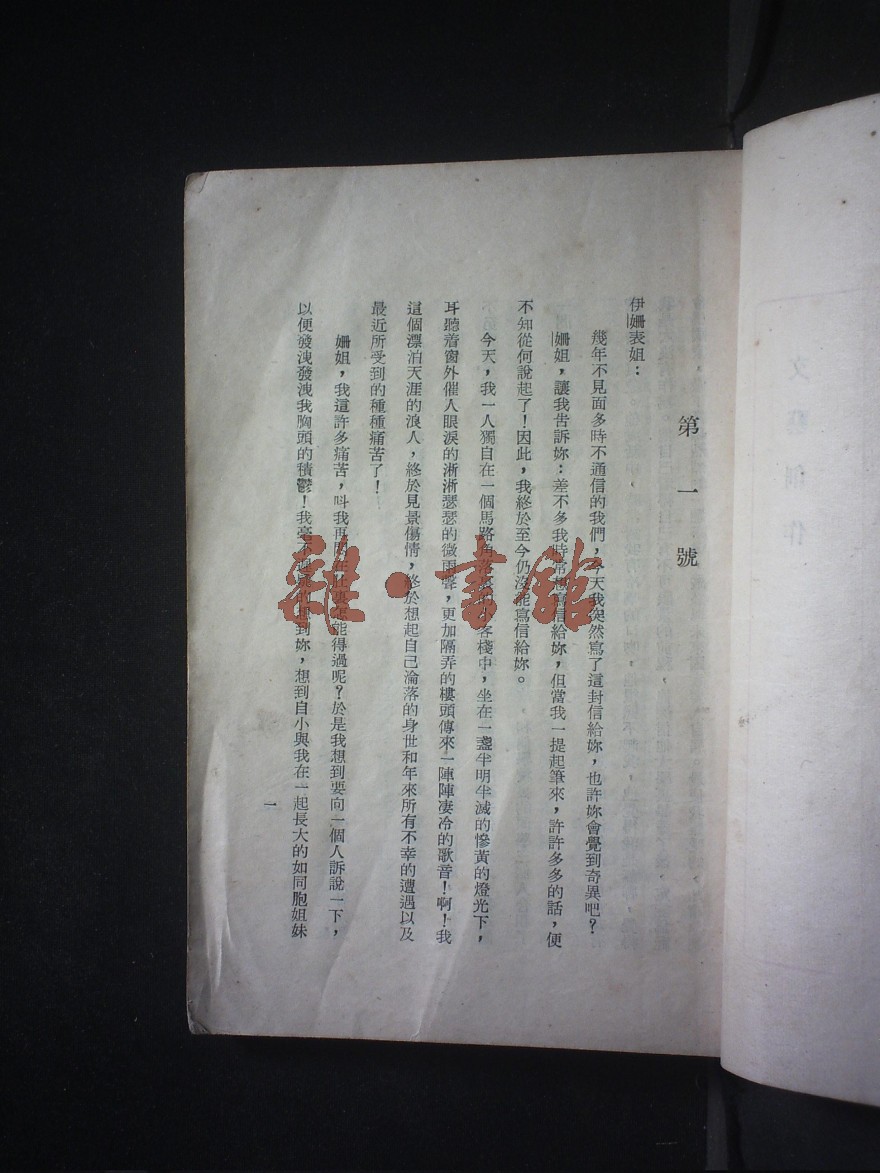 第一號
伊姍表姐：
幾年不見面多時不通信的我們，今天我突然寫了這封信給妳，也許妳會覺到奇異吧？
姍姐，讓我告訴妳：差不多我時常想寫信給妳，但當我一提起筆來，許許多多的話，便
不知從何說起了！因此，我終於至今仍沒能寫信給妳。
今天，我一人獨自在一個馬路角落裏的小客棧中，坐在一盞半明半滅的慘黃的燈光下，
耳聽着窗外催人眼淚的淅淅瑟瑟的微雨聲，更加隔弄的樓頭傳來一陣陣凄冷的歌音！啊！我
這個漂泊天涯的浪人，終於見景傷情，終於想起自己淪落的身世和年來所有不幸的遭遇以及
最近所受到的種種痛苦了！
姍姐，我這許多痛苦，呌我再悶在肚裏怎能得過呢？於是我想到要向一個人訴說一下，
以便發洩發洩我胸頭的積鬱！我毫不的想到妳，想到自小與我在一起長大的如同胞姐妹
一
雜·書館